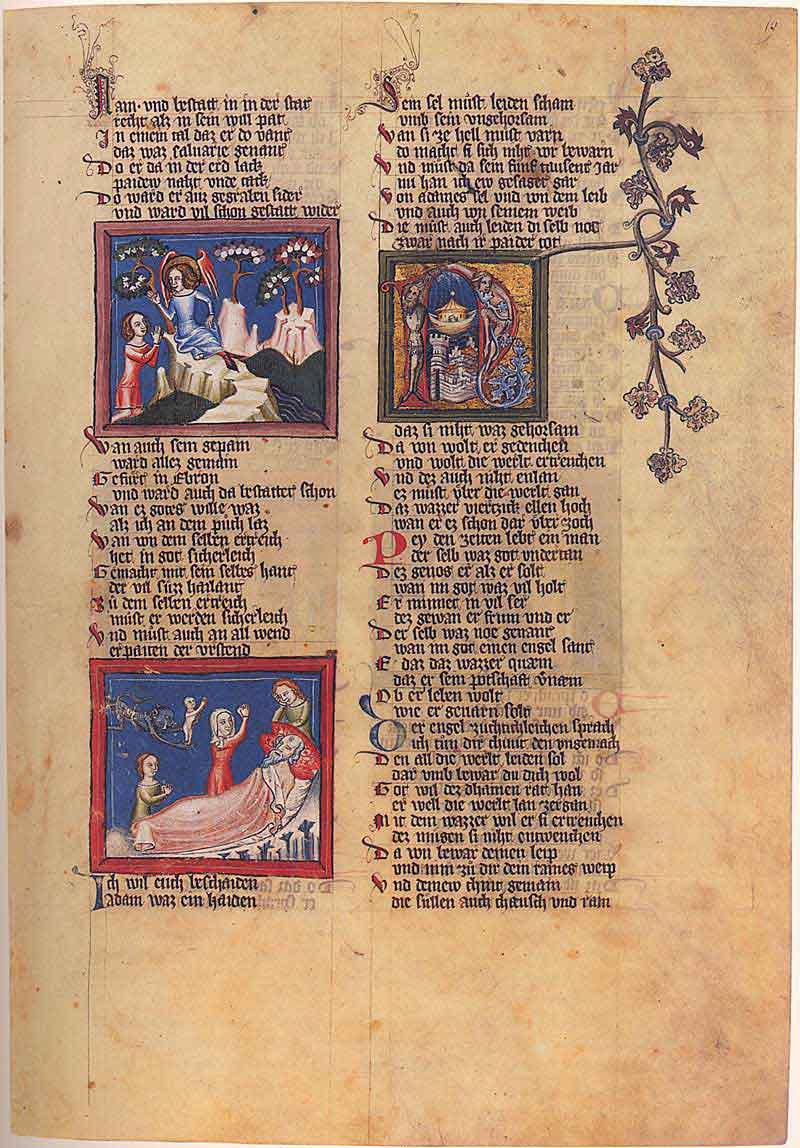 Nam · vnd bestatt in in der stat
recht alz in sein will pat
In einem tal daz er do vant
daz waz caluarie genant
Do er da in der erd lack
paidew naht vnde tack
Do ward er auz gegraben sider
vnd ward vil schon gestatt wider
Wan auch sein gepain
ward allez gemain
Gefurt in Ebron
vnd ward auch da bestattet schon
Wan ez gotes wille waz
alz ich an dem puch laz
Wan von dem selben ertreich
het in got sicherleich
Gemacht mit sein selbes hant
der vil suzz hailant
Zu dem selben ertreich
must er werden sicherleich
Vnd must auch an all wend
erpaiten der vrstend
Ich wil euch beschaiden
Adam waz ein haiden
Sein sel must leiden scham
vmb sein vngehorsam
Wan si ze hell must varn
do macht si sich niht vor bewarn
Vnd must da sein funf tausent iar
nu han ich ew gesaget gar
Von adames sel vnd von dem leib
vnd auch von seinem weib
Die must auch leiden di selb not
zwar nach ir paider tot
daz si niht waz gehorsam
Da von wolt er gedenchen
vnd wolt die werlt ertrenchen
Vnd dez auch niht enlan
ez must vber die werlt gan
Daz wazzer viertzick ellen hoch
wan er ez schon dar vber zoch
Pey den zeiten lebt ein man
der selb waz got vndertan
Dez genos er alz er solt
wan im got waz vil holt
Er minnet in vil ser
dez gewan er frum vnd er
Der selb waz noe genant
wan im got einen engel sant
E daz daz wazzer quæm
daz er sein potschaft vernæm
Ob er leben wolt
wie er genarn solt
Der engel zuchtichleichen sprach
ich tun dir chunt den vngemach
Den all die werlt leiden sol
dar vmb bewar du dich wol
Got wil dez chainen rat han
er well die werlt lan zergan
Mit dem wazzer wil er si ertrenchen
dez mugen si niht entwenchen
Da von bewar deinen leip
vnd nim zu dir dein raines weip
Vnd deinew chint gemain
die sullen auch chæusch vnd rain